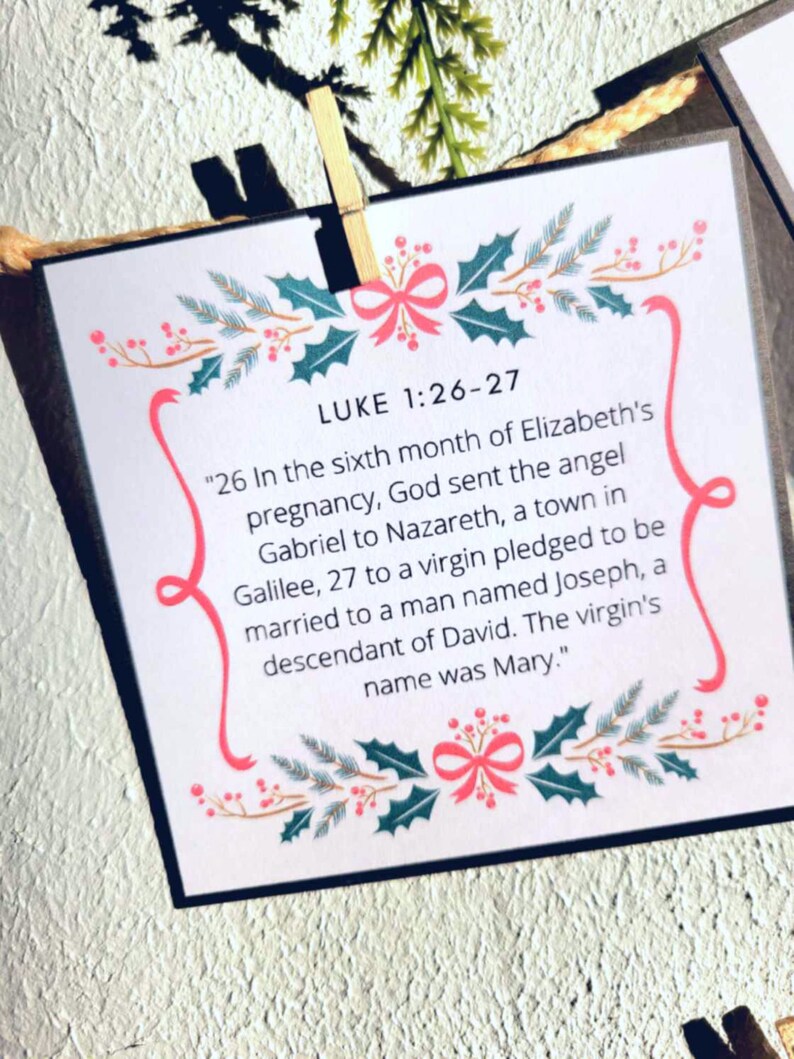 LUKE 1:26-27
"26 In the sixth month of Elizabeth's
pregnancy, God sent the angel
Gabriel to Nazareth, a town in
Galilee, 27 to a virgin pledged to be
married to a man named Joseph, a
descendant of David. The virgin's
name was Mary."